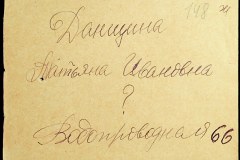 148
Данщина
Татьяна Ивановна
?
Водопроводная 66